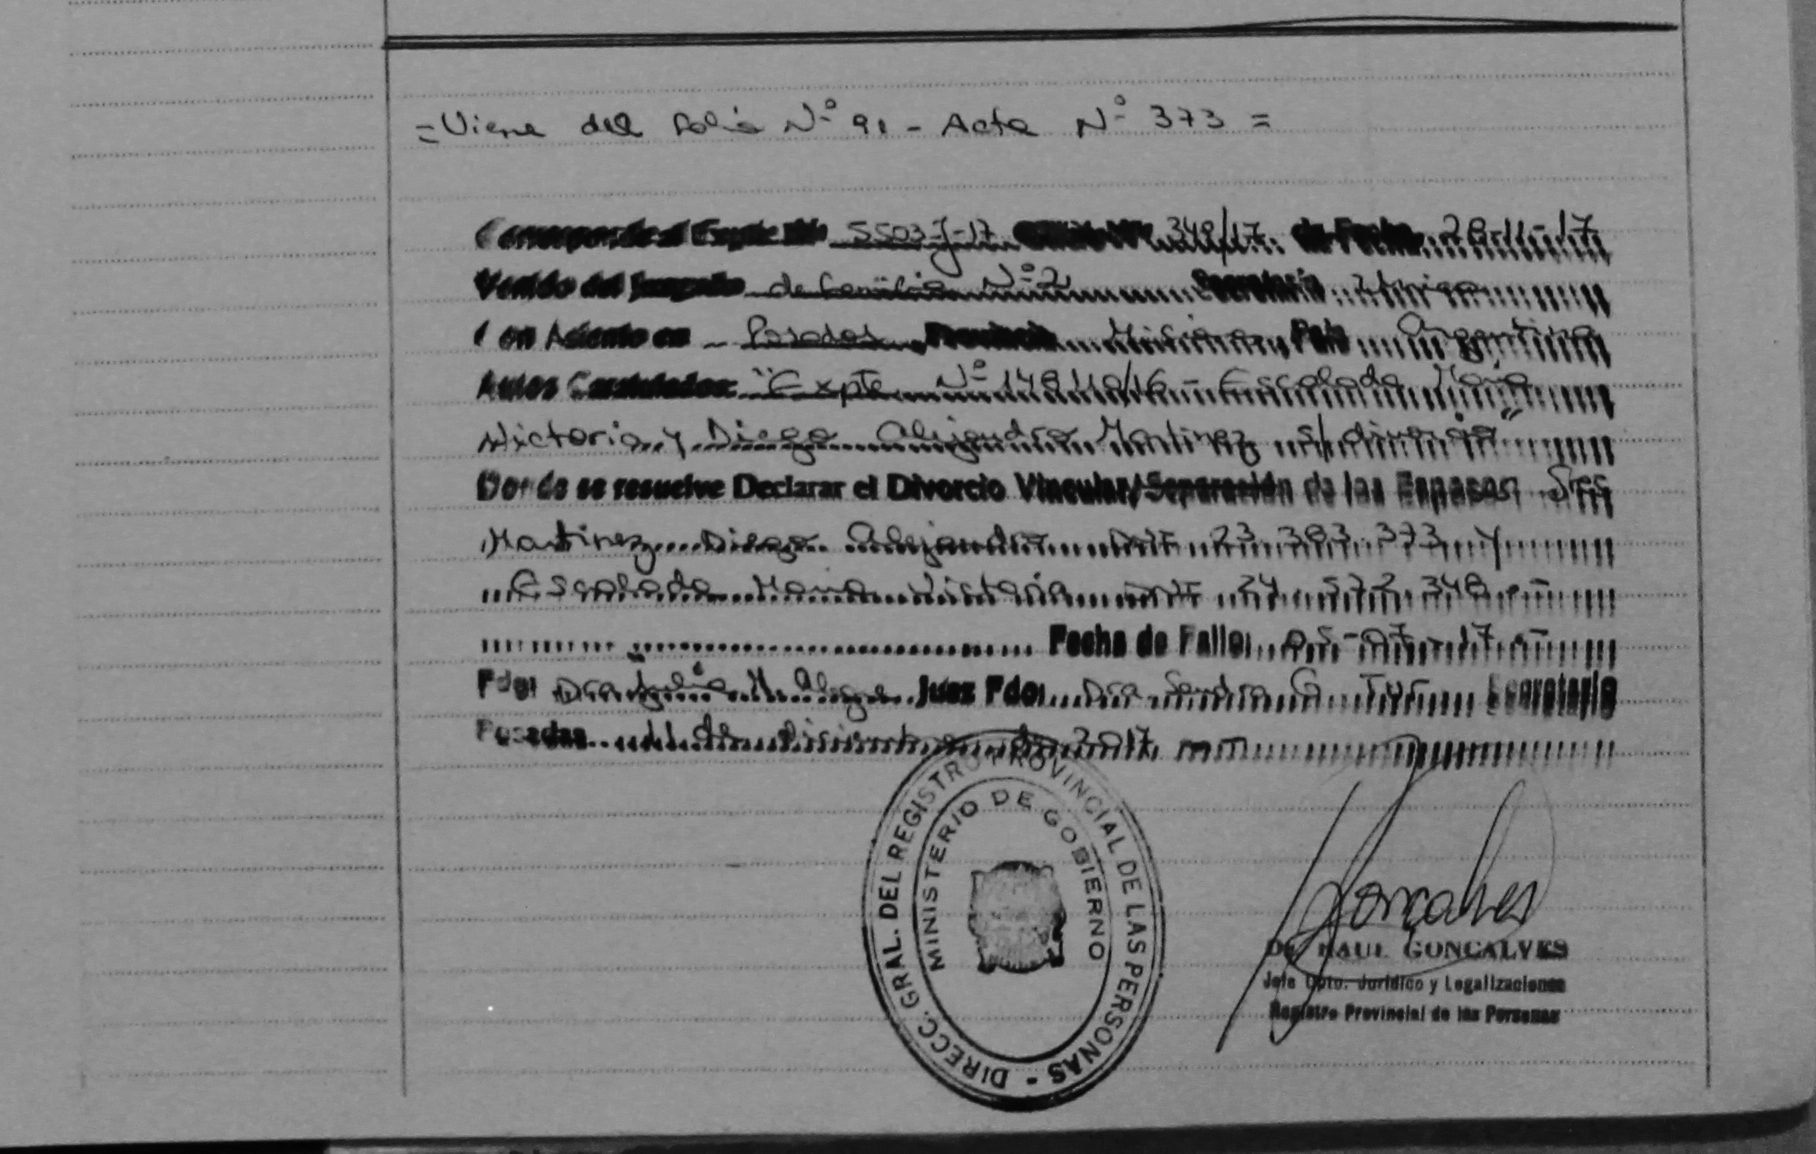 =Viene del folio Nº 91 - Acta Nº 373 =
Corresponde al Expte Nº 5503-J-17 349/17 de Fecha 28-11-17
Venido del Juzgado de Familia Nº 2 Secretaría Unica
Con Asiento en Posadas Provincia Misiones País Argentina
Autos Caratulados: "Expte Nº 149110/16 - Escalada María
Victoria y Diego Alejandro Martinez s/divorcio"
Donde se resuelve Declarar el Divorcio Vincular/Separación de los Esposos Sres
Martinez Diego Alejandro DNI 23.383.373 y
Escalada Maria Victoria DNI 24.572.348.-
Fecha de Fallo: 05-07-17.-
Fdo: Dra Julia M. Alegre Juez Fdo: Dra Sandra G. Secretario
Posadas 11 de Diciembre de 2017
DIRECC. GRAL. DEL REGISTRO PROVINCIAL DE LAS PERSONAS -
MINISTERIO DE GOBIERNO
Goncalves
Dr. RAUL GONCALVES
Jefe Dpto. Jurídico y Legalizaciones
Registro Provincial de las Personas